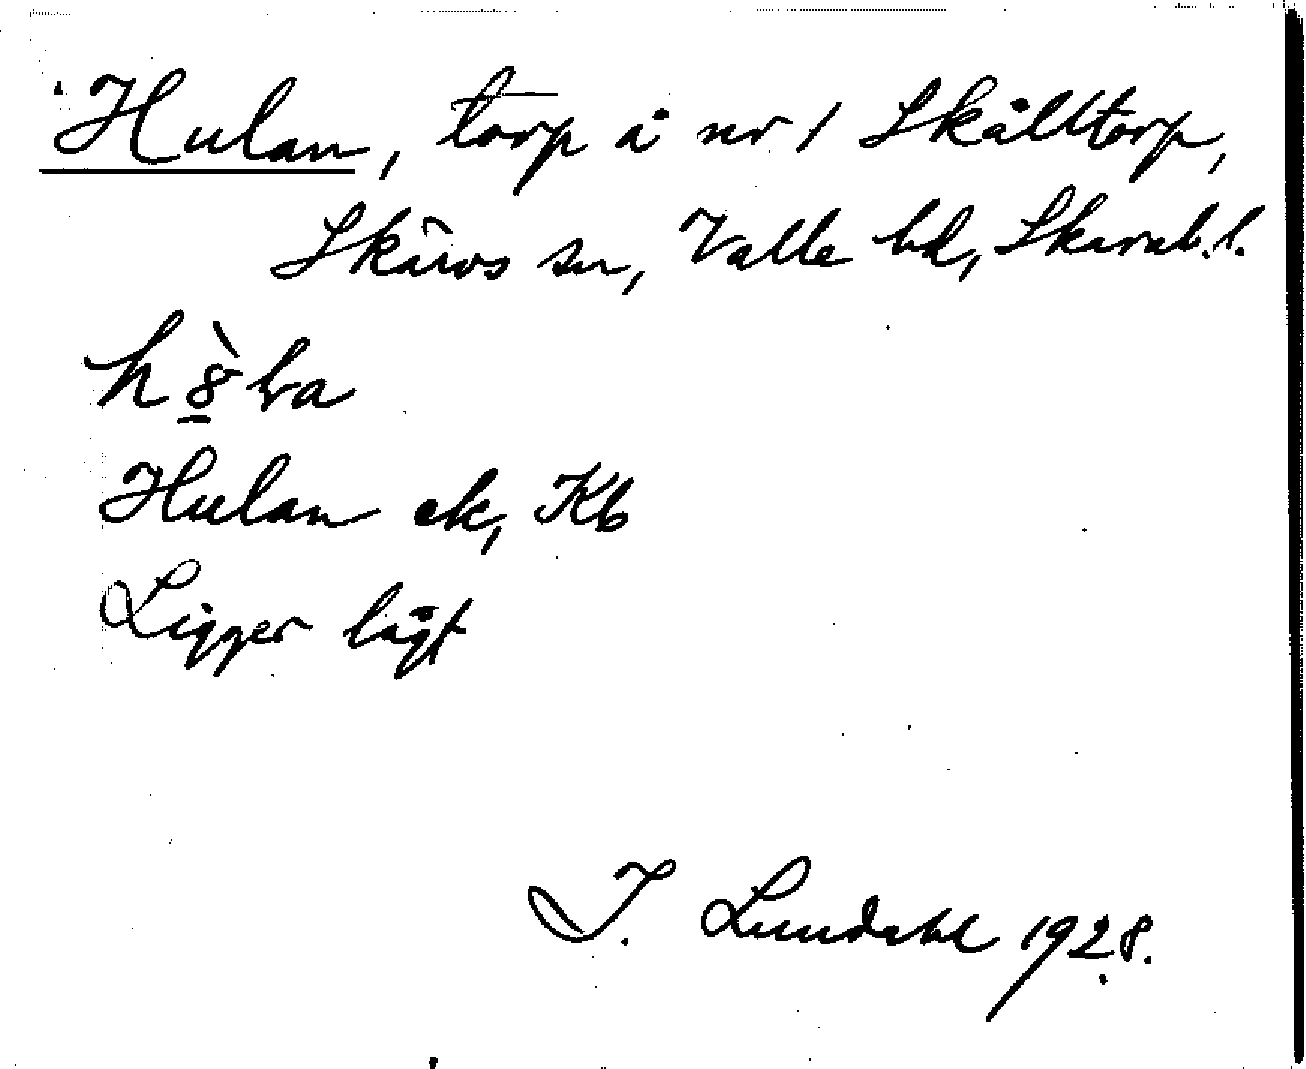 Hulan, torp å nr 1 Skålltorp,
Skärvs sn, Valle hd, Skarab. l.
Hulan ek, Kb
Ligger lågt
I. Lundahl 1928.